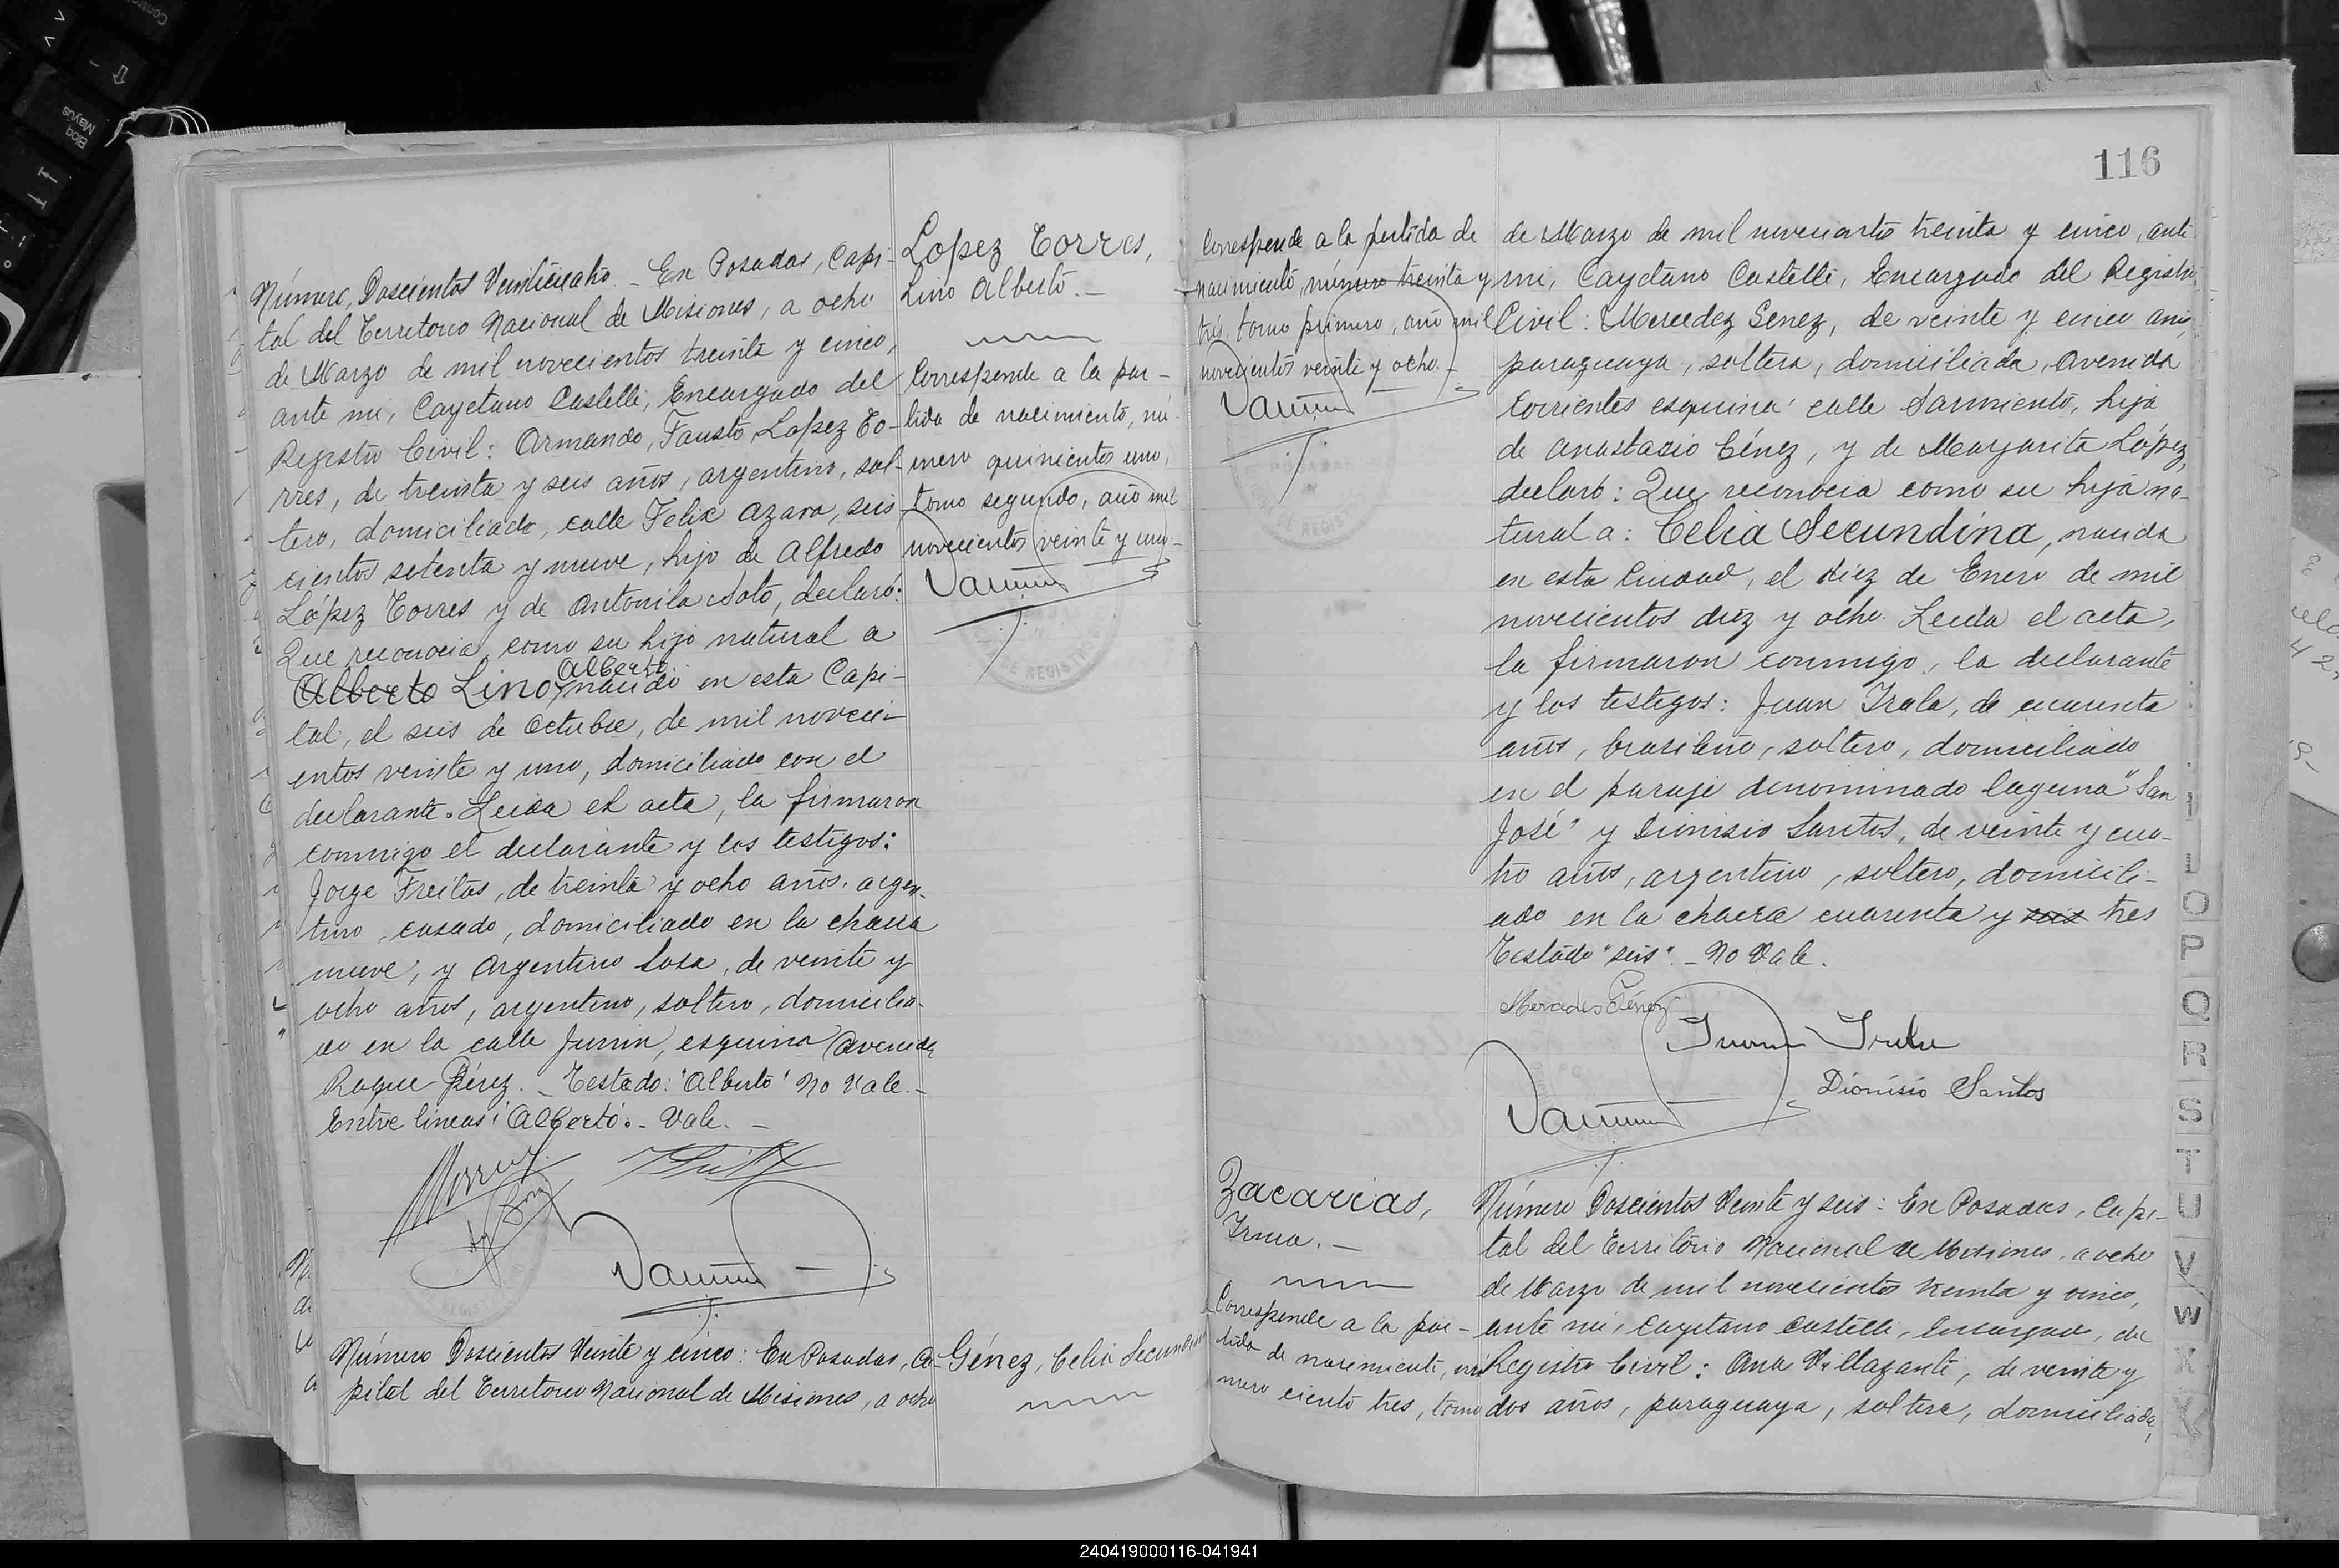 Número, Doscientos Veinticuatro - En Posadas, Capi-
tal del Territorio Nacional de Misiones, a ocho
de Marzo de mil novecientos treinta y cinco,
ante mi, Cayetano Castelli, Encargado del
Registro Civil: Armando, Fausto, Lopez To-
rres, de treinta y seis años, argentino, sol-
tero, domiciliado, calle Felix Azara, seis
cientos setenta y nueve, hijo de Alfredo
López Torres y de Antonila Soto, declaró:
Que reconocia, como su hijo natural a
Alberto
Alberto Lino, nacido en esta Capi-
tal, el seis de Octubre, de mil noveci-
entos veinte y uno, domiciliado con el
declarante. Leida el acta, la firmaron
conmigo el declarante y los testigos:
Jorge Freitas, de treinta y ocho años, argen-
tino, casado, domiciliado en la chacra
nueve, y Argentino Sosa, de veinte y
ocho años, argentino, soltero, domicilia-
do en la calle Junin, esquina Avenida
Roque Pérez. - Testado: "Alberto" No Vale.-
Entre lineas: "Alberto". - Vale. -
Número Doscientos Veinte y cinco: En Posadas, Ca-
pital del Territorio Nacional de Misiones, a ocho
Lopez Torres,
Lino Alberto. -
Corresponde a la par-
tida de nacimiento, nú-
mero quinientos uno,
tomo segundo, año mil
novecientos veinte y uno-
Génez, Celia Secundina
116
Corresponde a la partida de
nacimiento, número treinta y
trés, tomo primero, año mil
novecientos veinte y ocho.-
de Marzo de mil novecientos treinta y cinco, ante
mi, Cayetano Castelli, Encargado del Registro
Civil: Mercedez Genez, de veinte y cinco años,
paraguaya, soltera, domiciliada, Avenida
Corrientes esquina calle Sarmiento, hija
de Anastasio Génez, y de Margarita López,
declaró: Que reconocia como su hija na-
tural a: Celia Secundina, nacida
en esta Ciudad, el diez de Enero de mil
novecientos diez y ocho. Leida el acta,
la firmaron conmigo, la declarante
y los testigos: Juan Irala, de cuarenta
años, brasileño, soltero, domiciliado
en el paraje denominado laguna "San
José" y Dionisio Santos, de veinte y cua-
tro años, argentino, soltero, domicili-
ado en la chacra cuarenta y seis tres
Testado "seis". - No Vale.
Mercedes Génez
Juan Irala
Dionisio Santos
Zacarias,
Irma. -
Corresponde a la par-
tida de nacimiento, nú-
mero ciento tres, tomo
Número Doscientos Veinte y seis: En Posadas, Capi-
tal del Territorio Nacional de Misiones, a ocho
de Marzo de mil novecientos treinta y cinco,
ante mi, Cayetano Castelli, Encargado, del
Registro Civil: Ana Villazanti, de veinte y
dos años, paraguaya, soltera, domiciliada,
O
P
Q
R
S
T
U
V
W
X
240419000116-041941